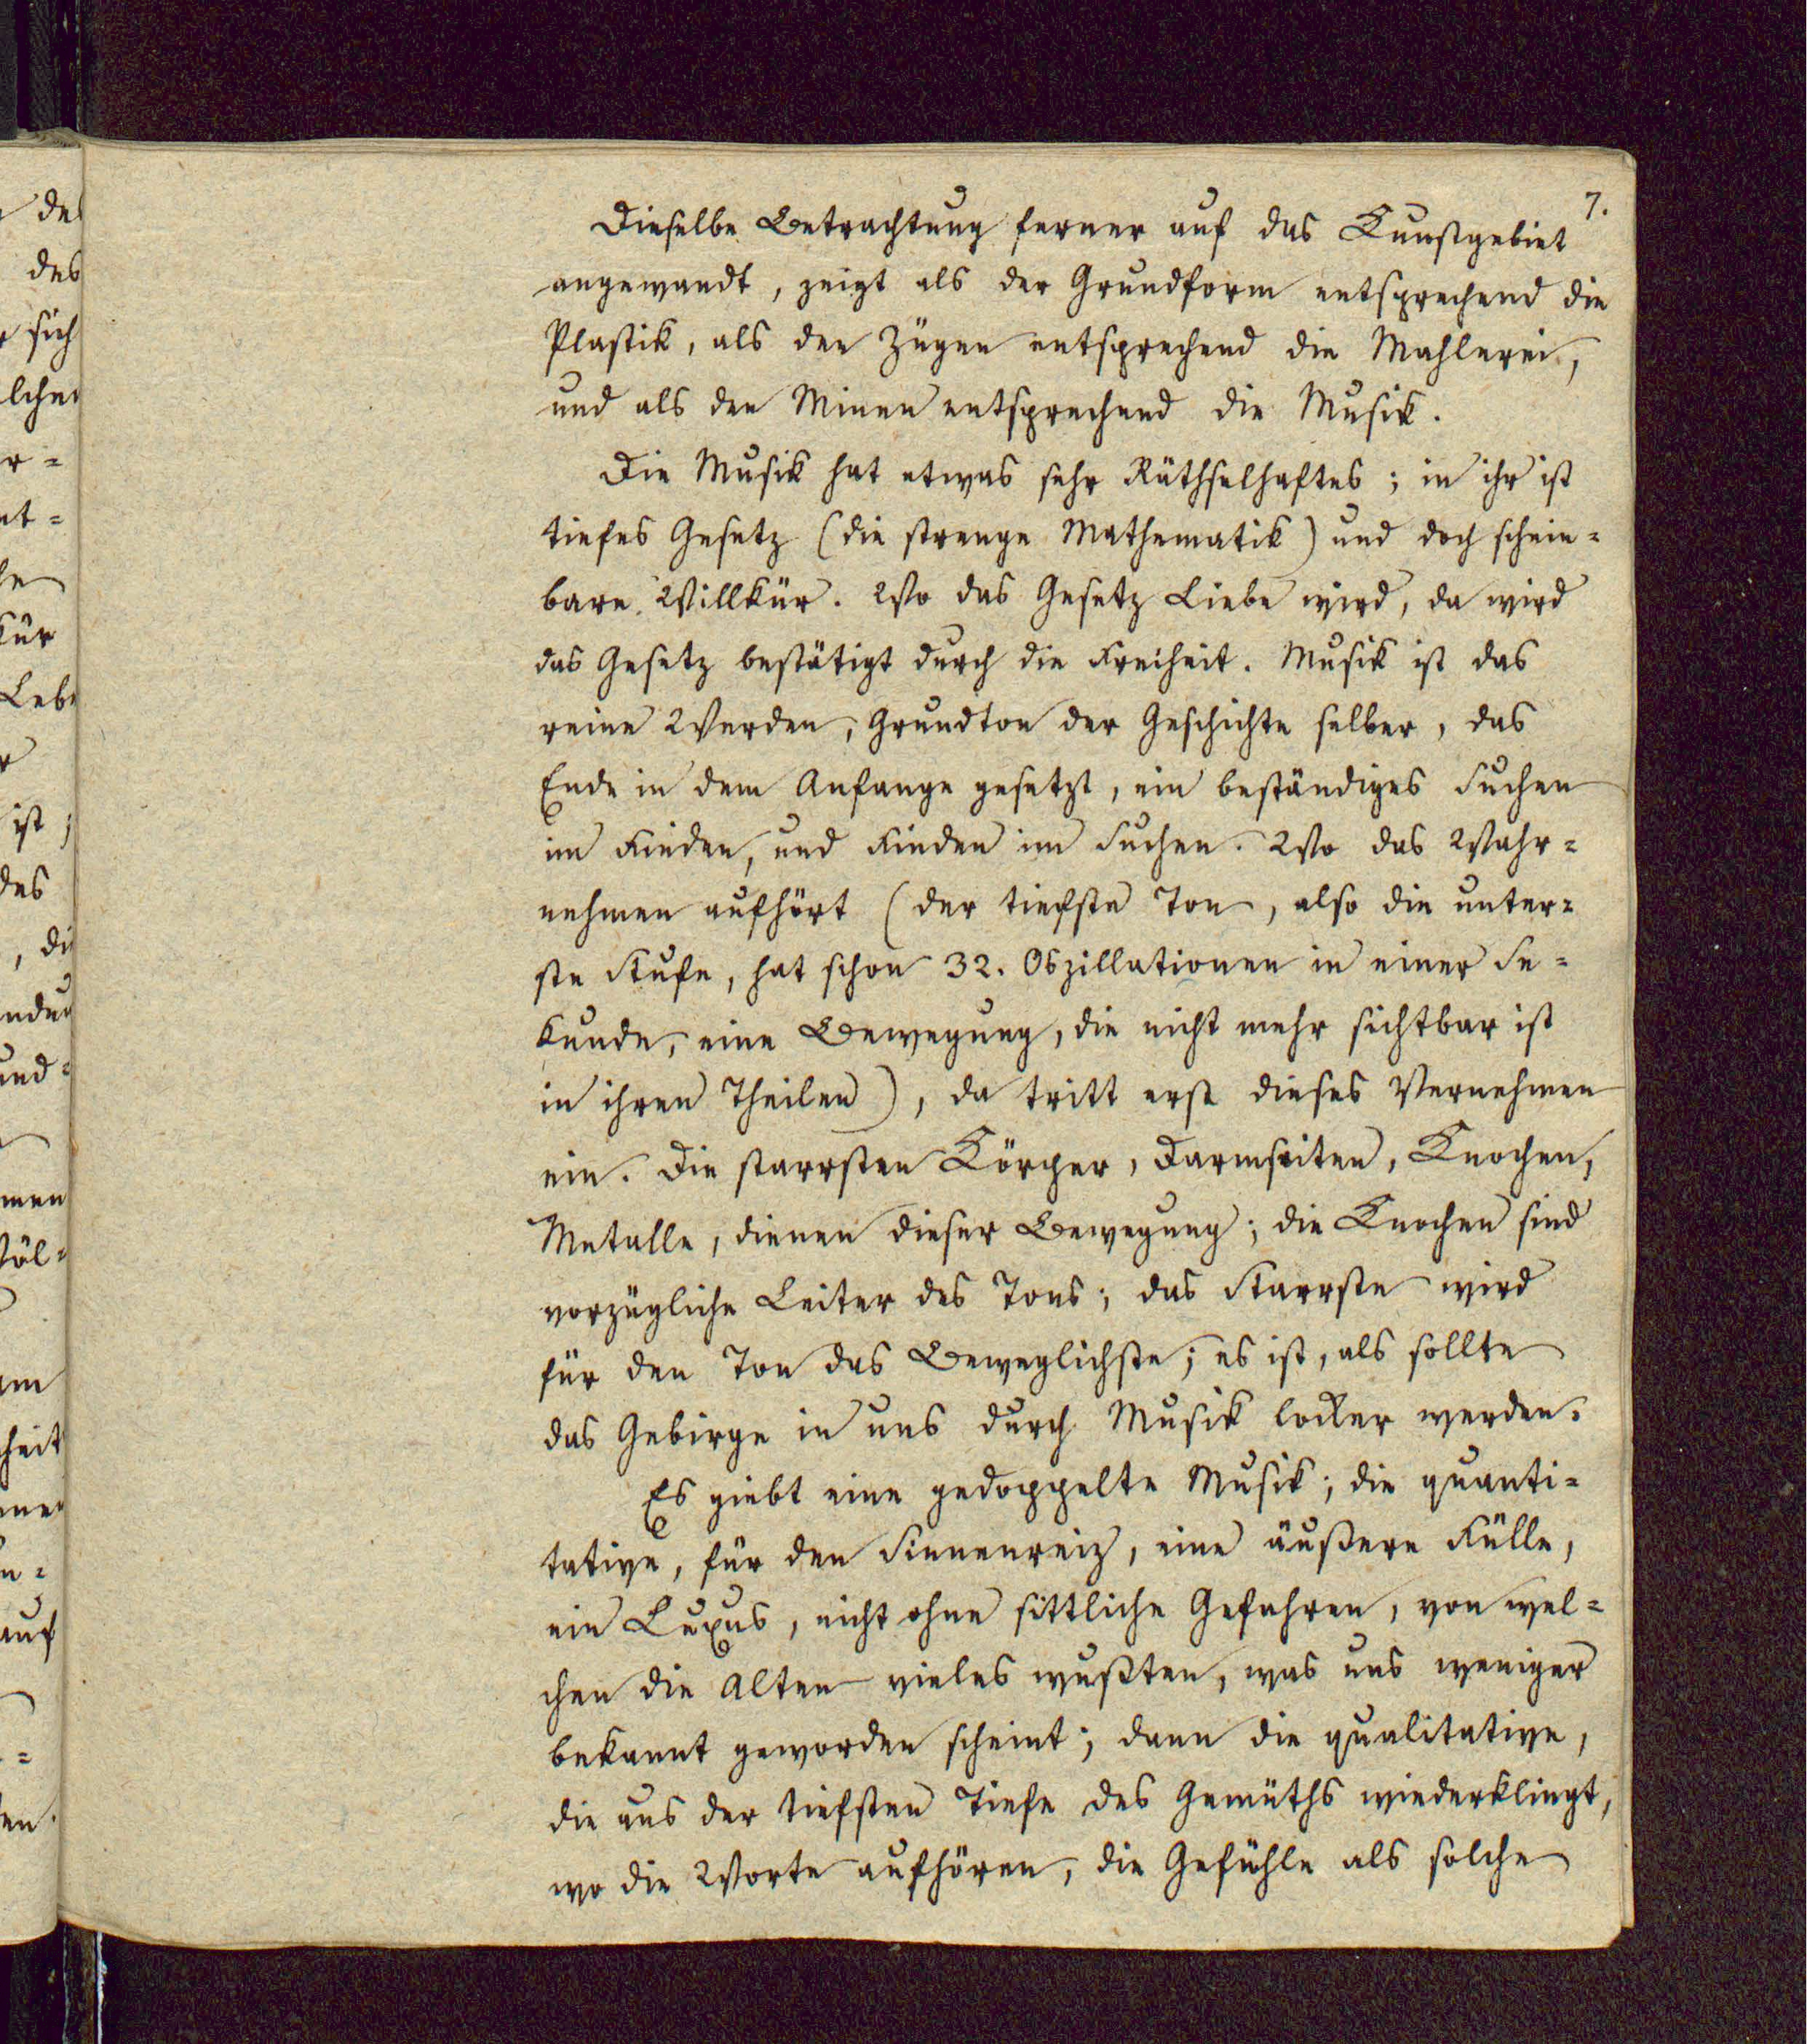 7.
Dieselbe Betrachtung ferner auf das Kunstgebiet
angewandt, zeigt als der Grundform entsprechend die
Plastik, als den Zügen entsprechend die Mahlerei,
und als den Minen entsprechend die Musik.
Die Musik hat etwas sehr Räthselhaftes; in ihr ist
tiefes Gesetz (die strenge Mathematik) und doch schein=
bare Willkür. Wo das Gesetz Liebe wird, da wird
das Gesetz bestätigt durch die Freiheit. Musik ist das
reine Werden, Grundton der Geschichte selber, das
Ende in dem Anfange gesetzt, ein beständiges Suchen
im Finden, und Finden im Suchen. Wo das Wahr=
nehmen aufhört (der tiefste Ton, also die unter=
ste Stufe, hat schon 32. Oszillationen in einer Se=
kunde, eine Bewegung, die nicht mehr sichtbar ist
in ihren Theilen), da tritt erst dieses Vernehmen
ein. Die starrsten Körper, Darmseiten, Knochen,
Metalle, dienen dieser Bewegung; die Knochen sind
vorzügliche Leiter des Tons; das Starrste wird
für den Ton das Beweglichste; es ist, als sollte
das Gebirge in uns durch Musik locker werden.
Es giebt eine gedoppelte Musik; die quanti=
tative, für den Sinnenreiz, eine äußere Fülle,
ein Luxus, nicht ohne sittliche Gefahren, von wel=
chen die Alten vieles wußten, was uns weniger
bekannt geworden scheint; dann die qualitative,
die aus der tiefsten Tiefe des Gemüths wiederklingt,
wo die Worte aufhören, die Gefühle als solche